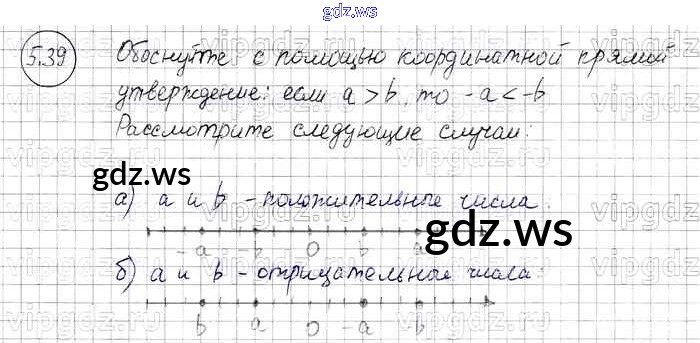 gdz.ws
5.39
Обоснуйте с помощью координатной прямой
утверждение: если a > b, то -a < -b
Рассмотрите следующие случаи:
gdz.ws
а) a и b - положительные числа.
gdz.ws
-a -b 0 b a
б) a и b - отрицательные числа:
b a 0 -a b
gdz.ws
vipgdz.com